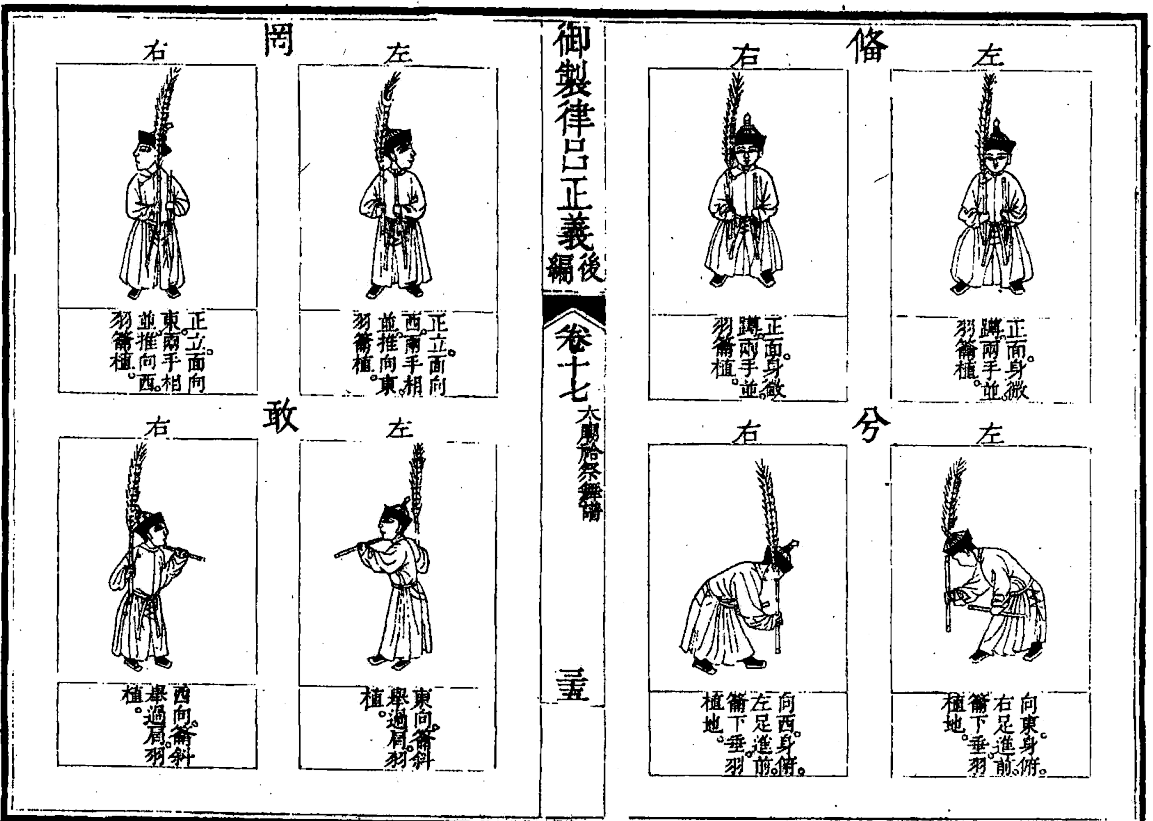 偹
左
正面。身微
蹲。兩手並。
羽籥植。
右
正面。身微
蹲。兩手並。
羽籥植。
兮
左
向東。身俯。
右足進前。
籥下垂。羽
植地。
右
向西。身俯。
左足進前。
籥下垂。羽
植地。
御製律呂正義後編
卷十七
太廟祫祭舞譜
三五
罔
左
正立。面向
西。兩手相
並。推向東。
羽籥植。
右
正立。面向
東。兩手相
並。推向西。
羽籥植。
敢
左
東向。籥斜
舉過肩。羽
植。
右
西向。籥斜
舉過肩。羽
植。